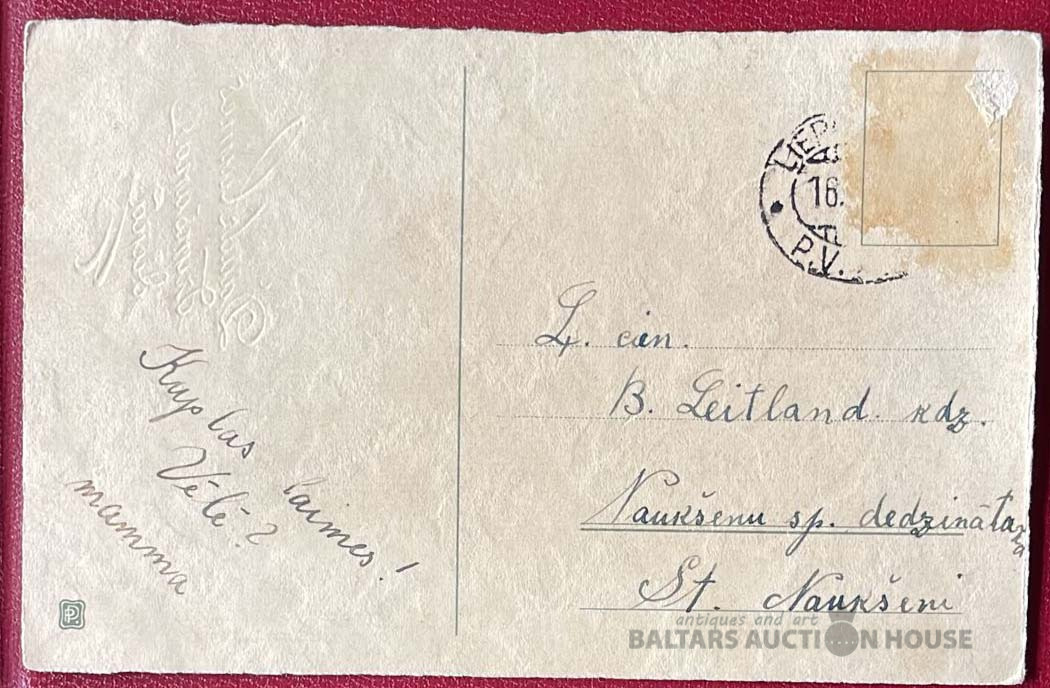 Kuplas laimes!
Vēlē?
mamma
LIEP
16.
P.V.
L. cien.
B. Leitland. kdz.
Naukšenu sp. dedzinātava
St. Naukšeni
antiques and art
BALTARS AUCTION HOUSE